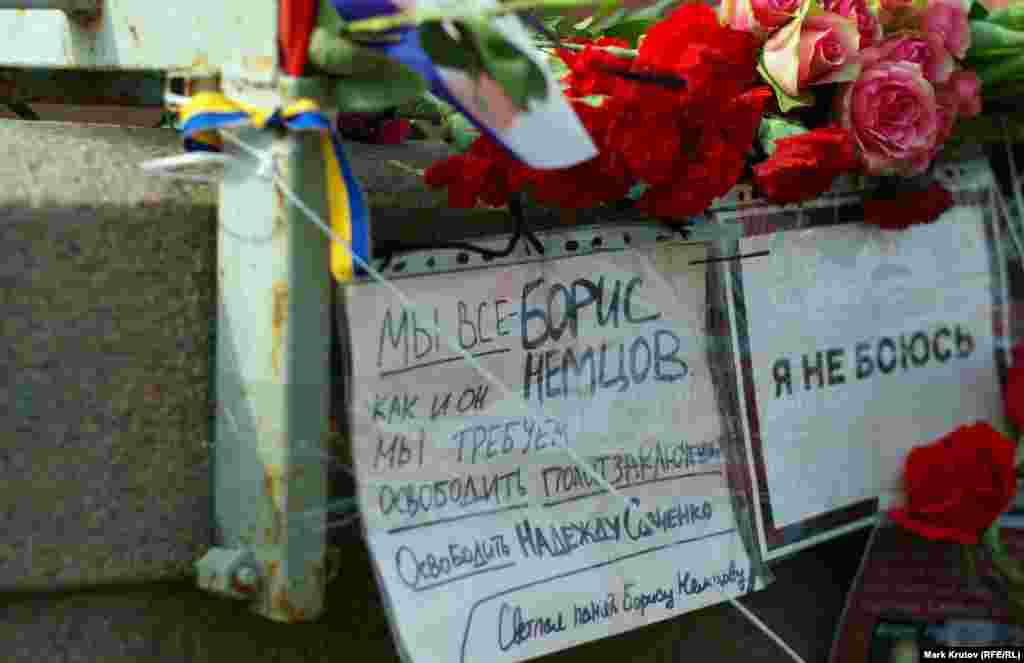 МЫ ВСЕ - БОРИС
НЕМЦОВ
КАК И ОН
МЫ ТРЕБУЕМ
ОСВОБОДИТЬ ПОЛИТЗАКЛЮЧЕННЫХ
ОСВОБОДИТЬ НАДЕЖДУ САВЧЕНКО
Светлая память Борису Немцову
Я НЕ БОЮСЬ
Mark Krutov (RFE/RL)